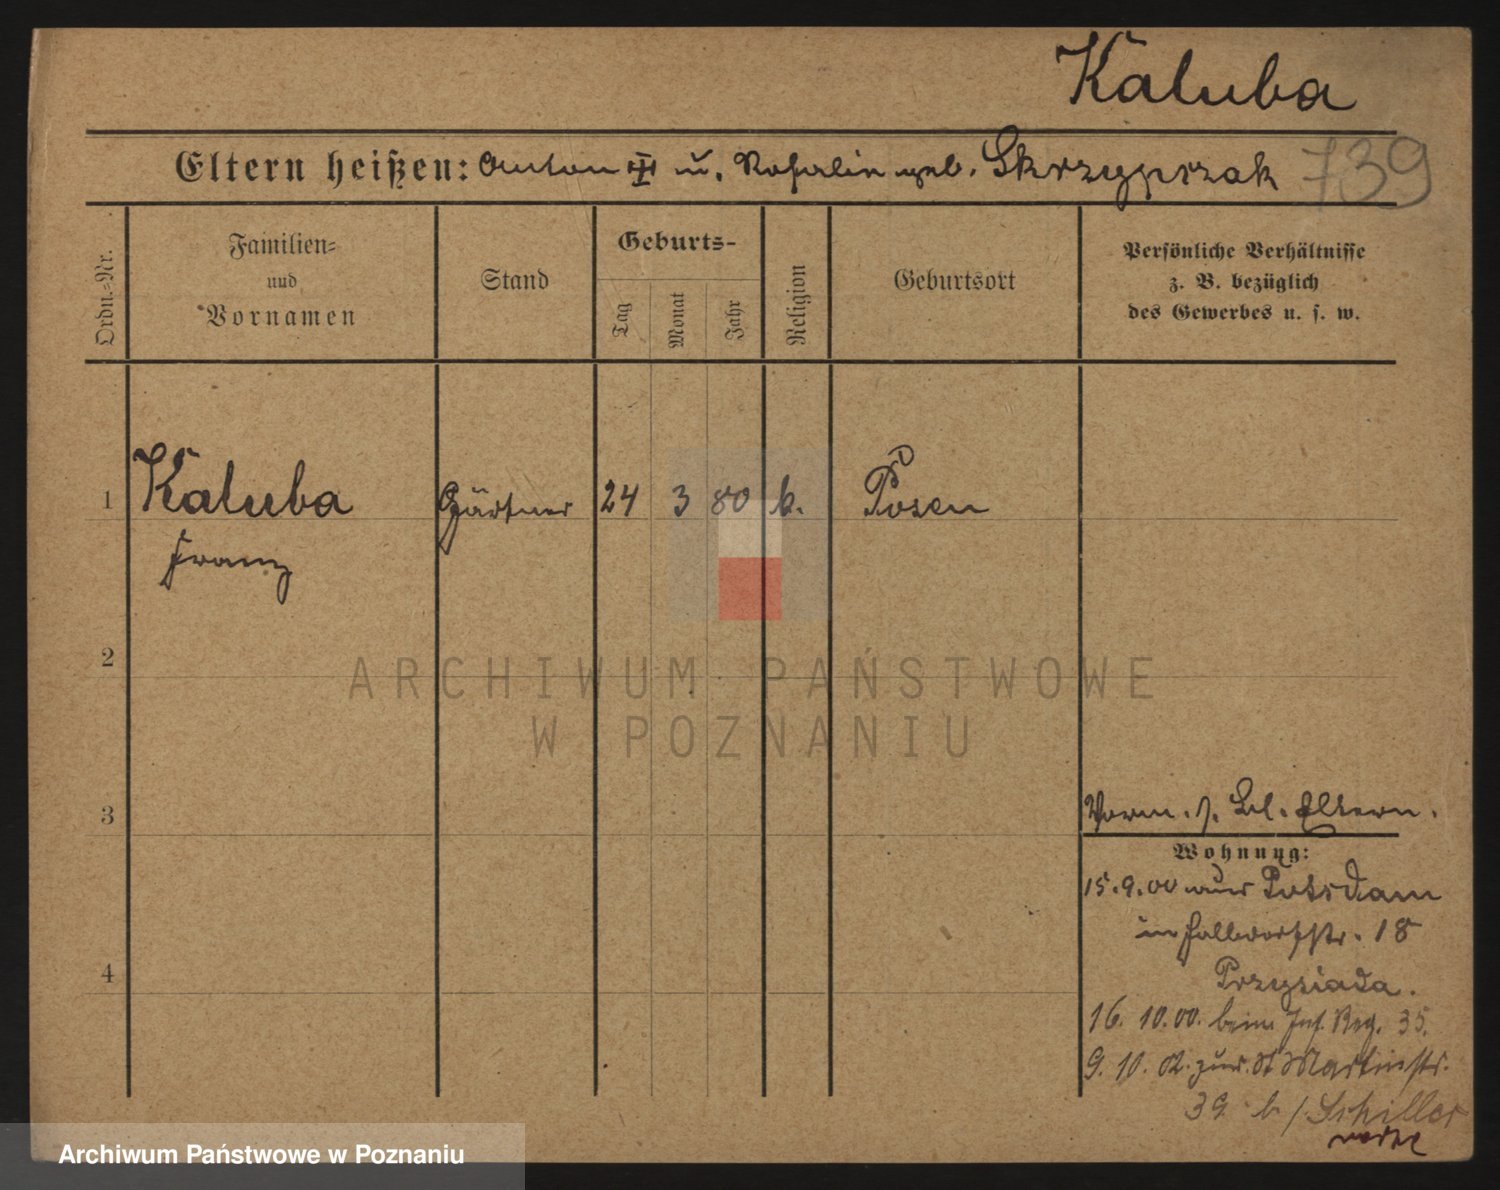 Kaluba
Eltern heißen: Anton III u. Rosalie geb. Skrzypczak 739
Ordn.-Nr.
Familien-
und
Vornamen
Stand
Geburts-
Tag
Monat
Jahr
Religion
Geburtsort
Persönliche Verhältnisse
z. B. bezüglich
des Gewerbes u. s. w.
1 Kaluba Gärtner 24 3 80 k. Posen
Franz
2
3
4
Vorm. s. Bl. Eltern.
Wohnung:
15.9.00 aus Potsdam
18
Przysiada.
16. 10. 00. beim Inf. Reg. 35.
9. 10. 02. zur. St Martinstr.
39 b / Schiller
ARCHIWUM PAŃSTWOWE
W POZNANIU
Archiwum Państwowe w Poznaniu